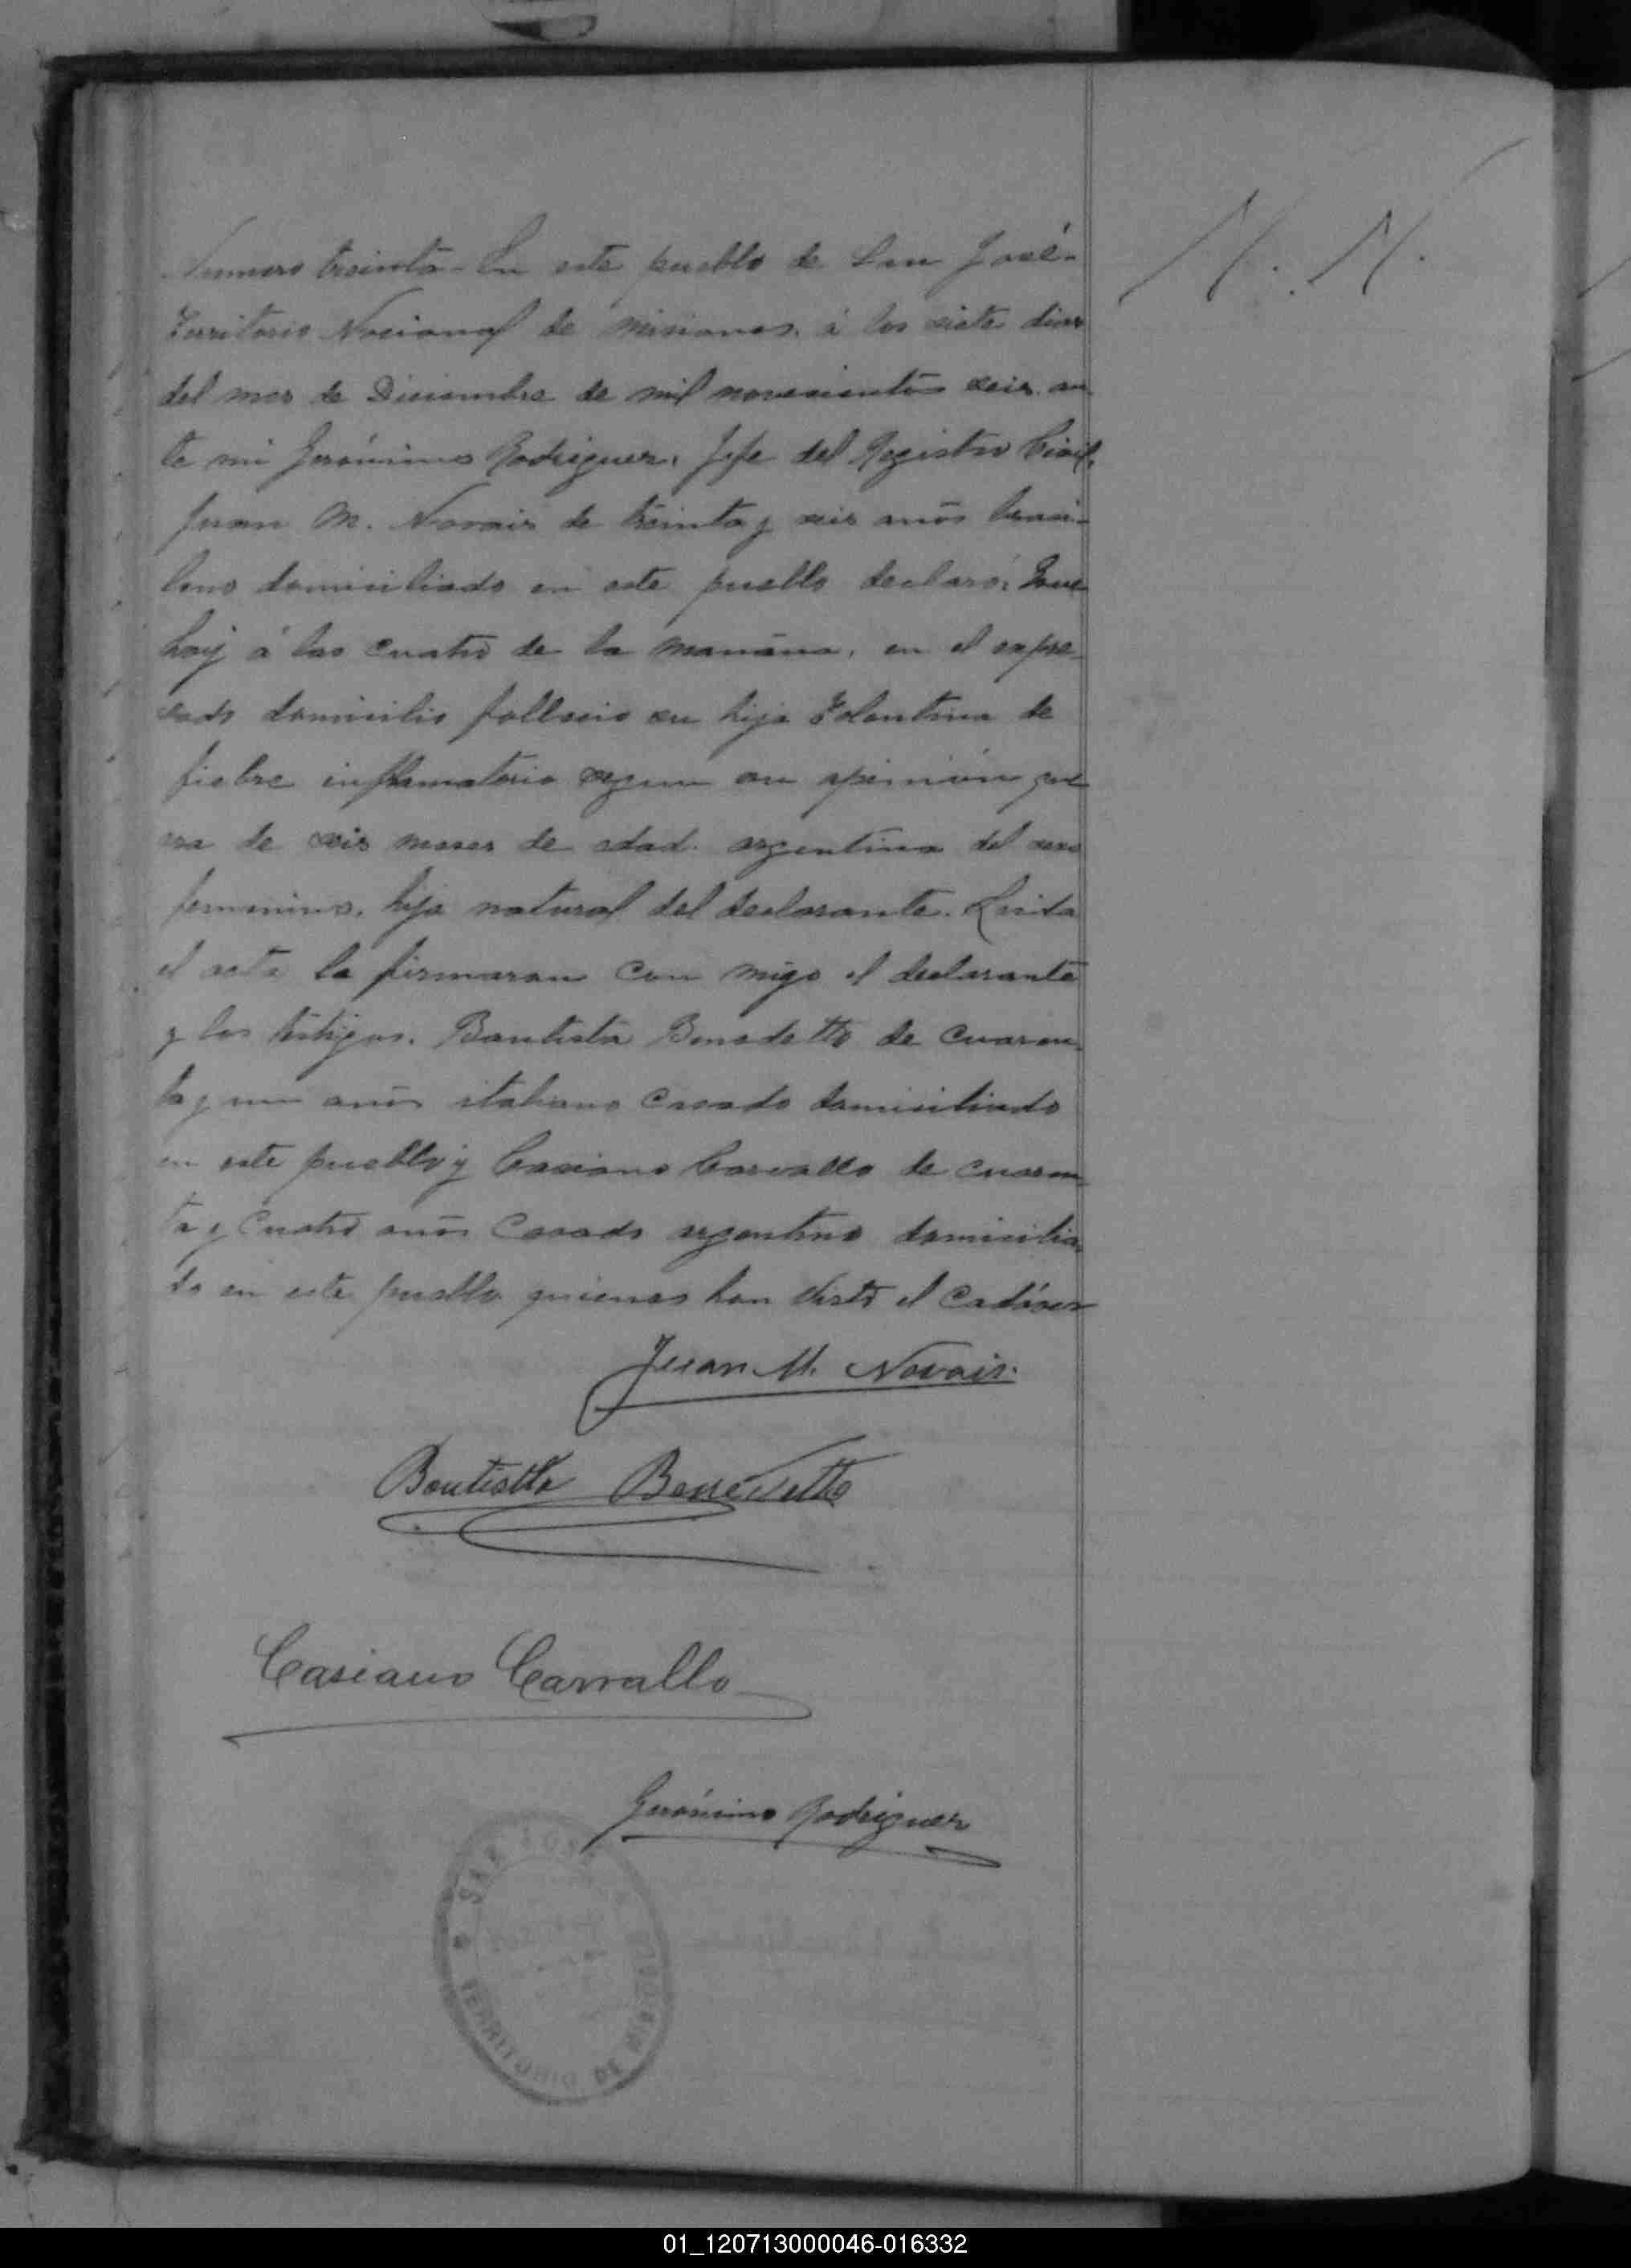 Numero treinta - En este pueblo de San José -
N. N.
Territorio Nacional de Misiones, á los siete dias
del mes de Diciembre de mil novecientos seis, an
te mi Gerónimo Rodriguez, Jefe del Registro Civil,
Juan M. Novais de treinta y seis años brasi-
leno domiciliado en este pueblo declaró: Que
hoy á las cuatro de la mañana, en el expre-
sado domicilio fallecio su hija de
fiebre inflamatoria segun su opinión que
era de seis meses de edad. argentina del sexo
femenino, hija natural del declarante. Leida
el acta la firmaran con migo el declarante
y los testigos. Bautista Benedetto de cuaren-
ta y un años italiano casado domiciliado
en este pueblo y Casiano Carvallo de cuaren
ta y cuatro años casado argentino domicilia-
do en este pueblo quienes han visto el cadáver
Juan M. Novais.
Bautistta Benedetto
Casiano Carvallo
Gerónimo Rodriguez
SAN JOSE
TERRITORIO DE MISIONES
01_120713000046-016332